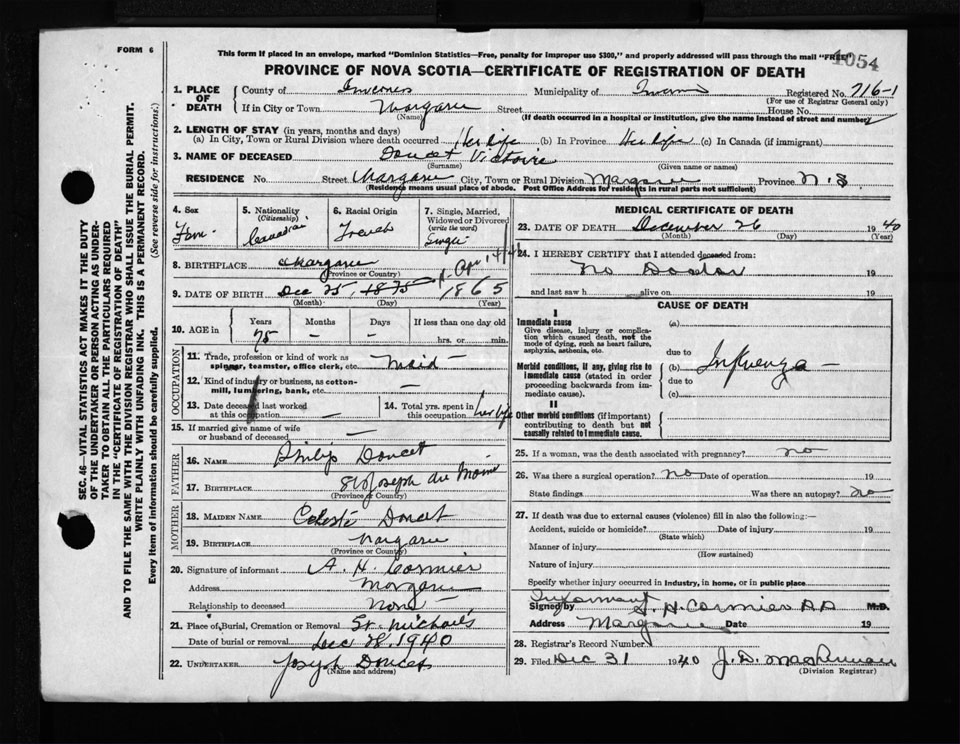 FORM 6
This form if placed in an envelope, marked "Dominion Statistics—Free, penalty for improper use $300," and properly addressed will pass through the mail "FREE"
1054
PROVINCE OF NOVA SCOTIA—CERTIFICATE OF REGISTRATION OF DEATH
1. PLACE OF DEATH
County of Inverness Municipality of Registered No. 716-1
(For use of Registrar General only)
If in City or Town Margaree Street House No.
(Name) (If death occurred in a hospital or institution, give the name instead of street and number)
2. LENGTH OF STAY (in years, months and days)
(a) In City, Town or Rural Division where death occurred Her life (b) In Province Her life (c) In Canada (if immigrant)
3. NAME OF DECEASED Doucet Victoire
(Surname) (Given name or names)
RESIDENCE No. Street Margaree City, Town or Rural Division Margaree Province N.S
(Residence means usual place of abode. Post Office Address for residents in rural parts not sufficient)
4. Sex
Fem
5. Nationality (Citizenship)
Canadian
6. Racial Origin
French
7. Single, Married, Widowed or Divorced (write the word)
Single
8. BIRTHPLACE Margaree
(Province or Country)
9. DATE OF BIRTH Dec 25, 1875 1865
(Month) (Day) (Year)
10. AGE in
Years Months Days If less than one day old
75 - - hrs. or min.
OCCUPATION
11. Trade, profession or kind of work as spinner, teamster, office clerk, etc. Maid
12. Kind of industry or business, as cotton-mill, lumbering, bank, etc. —
13. Date deceased last worked at this occupation —
14. Total yrs. spent in this occupation her life
15. If married give name of wife or husband of deceased —
FATHER
16. NAME Philip Doucet
17. BIRTHPLACE St Joseph du Moine
(Province or Country)
MOTHER
18. MAIDEN NAME Celeste Doucet
19. BIRTHPLACE Margaree
(Province or Country)
20. Signature of informant A. H. Cormier
Address Margaree
Relationship to deceased None
21. Place of Burial, Cremation or Removal St. Michaels
Date of burial or removal Dec 28, 1940
22. UNDERTAKER Joseph Doucet
(Name and address)
MEDICAL CERTIFICATE OF DEATH
23. DATE OF DEATH December 26 1940
(Month) (Day) (Year)
24. I HEREBY CERTIFY that I attended deceased from:
No Doctor 19
and last saw h alive on 19
CAUSE OF DEATH
I
Immediate cause
Give disease, injury or complication which caused death, not the mode of dying, such as heart failure, asphyxia, asthenia, etc.
(a)
due to
Morbid conditions, if any, giving rise to immediate cause (stated in order proceeding backwards from immediate).
(b) Influenza
due to
(c)
II
Other morbid conditions (if important) contributing to death but not causally related to immediate cause.
25. If a woman, was the death associated with pregnancy? no
26. Was there a surgical operation? no Date of operation 19
State findings Was there an autopsy? no
27. If death was due to external causes (violence) fill in also the following:—
Accident, suicide or homicide? Date of injury 19
(State which)
Manner of injury
(How sustained)
Nature of injury
Specify whether injury occurred in industry, in home, or in public place
Informant
Signed by A. H. Cormier M.D.
Address Margaree Date 19
28. Registrar's Record Number
29. Filed Dec 31 1940 J. D.
(Division Registrar)
SEC. 46—VITAL STATISTICS ACT MAKES IT THE DUTY OF THE UNDERTAKER OR PERSON ACTING AS UNDERTAKER TO OBTAIN ALL THE PARTICULARS REQUIRED IN THE "CERTIFICATE OF REGISTRATION OF DEATH"
AND TO FILE THE SAME WITH THE DIVISION REGISTRAR WHO SHALL ISSUE THE BURIAL PERMIT.
WRITE PLAINLY WITH UNFADING INK. THIS IS A PERMANENT RECORD.
Every item of information should be carefully supplied. (See reverse side for instructions.)